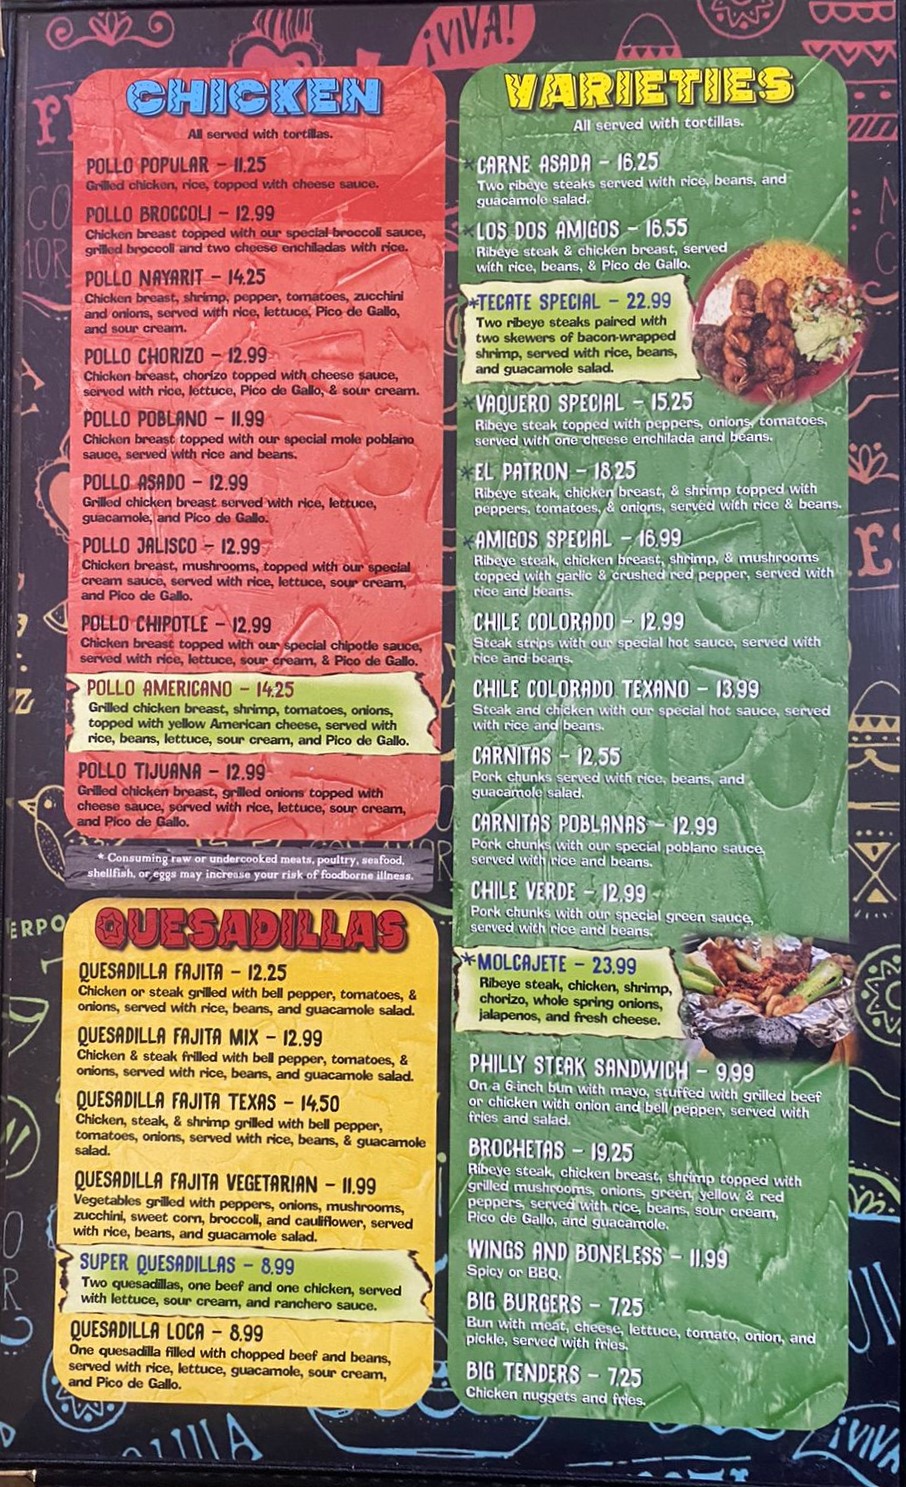 ¡VIVA!
CHICKEN
All served with tortillas.
POLLO POPULAR - 11.25
Grilled chicken, rice, topped with cheese sauce.
POLLO BROCCOLI - 12.99
Chicken breast topped with our special broccoli sauce,
grilled broccoli and two cheese enchiladas with rice.
POLLO NAYARIT - 14.25
Chicken breast, shrimp, pepper, tomatoes, zucchini
and onions, served with rice, lettuce, Pico de Gallo,
and sour cream.
POLLO CHORIZO - 12.99
Chicken breast, chorizo topped with cheese sauce,
served with rice, lettuce, Pico de Gallo, & sour cream.
POLLO POBLANO - 11.99
Chicken breast topped with our special mole poblano
sauce, served with rice and beans.
POLLO ASADO - 12.99
Grilled chicken breast served with rice, lettuce,
guacamole, and Pico de Gallo.
POLLO JALISCO - 12.99
Chicken breast, mushrooms, topped with our special
cream sauce, served with rice, lettuce, sour cream,
and Pico de Gallo.
POLLO CHIPOTLE - 12.99
Chicken breast topped with our special chipotle sauce,
served with rice, lettuce, sour cream, & Pico de Gallo.
POLLO AMERICANO - 14.25
Grilled chicken breast, shrimp, tomatoes, onions,
topped with yellow American cheese, served with
rice, beans, lettuce, sour cream, and Pico de Gallo.
POLLO TIJUANA - 12.99
Grilled chicken breast, grilled onions topped with
cheese sauce, served with rice, lettuce, sour cream,
and Pico de Gallo.
* Consuming raw or undercooked meats, poultry, seafood,
shellfish, or eggs may increase your risk of foodborne illness.
QUESADILLAS
QUESADILLA FAJITA - 12.25
Chicken or steak grilled with bell pepper, tomatoes, &
onions, served with rice, beans, and guacamole salad.
QUESADILLA FAJITA MIX - 12.99
Chicken & steak frilled with bell pepper, tomatoes, &
onions, served with rice, beans, and guacamole salad.
QUESADILLA FAJITA TEXAS - 14.50
Chicken, steak, & shrimp grilled with bell pepper,
tomatoes, onions, served with rice, beans, & guacamole
salad.
QUESADILLA FAJITA VEGETARIAN - 11.99
Vegetables grilled with peppers, onions, mushrooms,
zucchini, sweet corn, broccoli, and cauliflower, served
with rice, beans, and guacamole salad.
SUPER QUESADILLAS - 8.99
Two quesadillas, one beef and one chicken, served
with lettuce, sour cream, and ranchero sauce.
QUESADILLA LOCA - 8.99
One quesadilla filled with chopped beef and beans,
served with rice, lettuce, guacamole, sour cream,
and Pico de Gallo.
VARIETIES
All served with tortillas.
*CARNE ASADA - 16.25
Two ribeye steaks served with rice, beans, and
guacamole salad.
*LOS DOS AMIGOS - 16.55
Ribeye steak & chicken breast, served
with rice, beans, & Pico de Gallo.
*TECATE SPECIAL - 22.99
Two ribeye steaks paired with
two skewers of bacon-wrapped
shrimp, served with rice, beans,
and guacamole salad.
*VAQUERO SPECIAL - 15.25
Ribeye steak topped with peppers, onions, tomatoes,
served with one cheese enchilada and beans.
*EL PATRON - 18.25
Ribeye steak, chicken breast, & shrimp topped with
peppers, tomatoes, & onions, served with rice & beans.
*AMIGOS SPECIAL - 16.99
Ribeye steak, chicken breast, shrimp, & mushrooms
topped with garlic & crushed red pepper, served with
rice and beans.
CHILE COLORADO - 12.99
Steak strips with our special hot sauce, served with
rice and beans.
CHILE COLORADO TEXANO - 13.99
Steak and chicken with our special hot sauce, served
with rice and beans.
CARNITAS - 12.55
Pork chunks served with rice, beans, and
guacamole salad.
CARNITAS POBLANAS - 12.99
Pork chunks with our special poblano sauce,
served with rice and beans.
CHILE VERDE - 12.99
Pork chunks with our special green sauce,
served with rice and beans.
*MOLCAJETE - 23.99
Ribeye steak, chicken, shrimp,
chorizo, whole spring onions,
jalapenos, and fresh cheese.
PHILLY STEAK SANDWICH - 9.99
On a 6-inch bun with mayo, stuffed with grilled beef
or chicken with onion and bell pepper, served with
fries and salad.
BROCHETAS - 19.25
Ribeye steak, chicken breast, shrimp topped with
grilled mushrooms, onions, green, yellow & red
peppers, served with rice, beans, sour cream,
Pico de Gallo, and guacamole.
WINGS AND BONELESS - 11.99
Spicy or BBQ.
BIG BURGERS - 7.25
Bun with meat, cheese, lettuce, tomato, onion, and
pickle, served with fries.
BIG TENDERS - 7.25
Chicken nuggets and fries.
¡VIVA